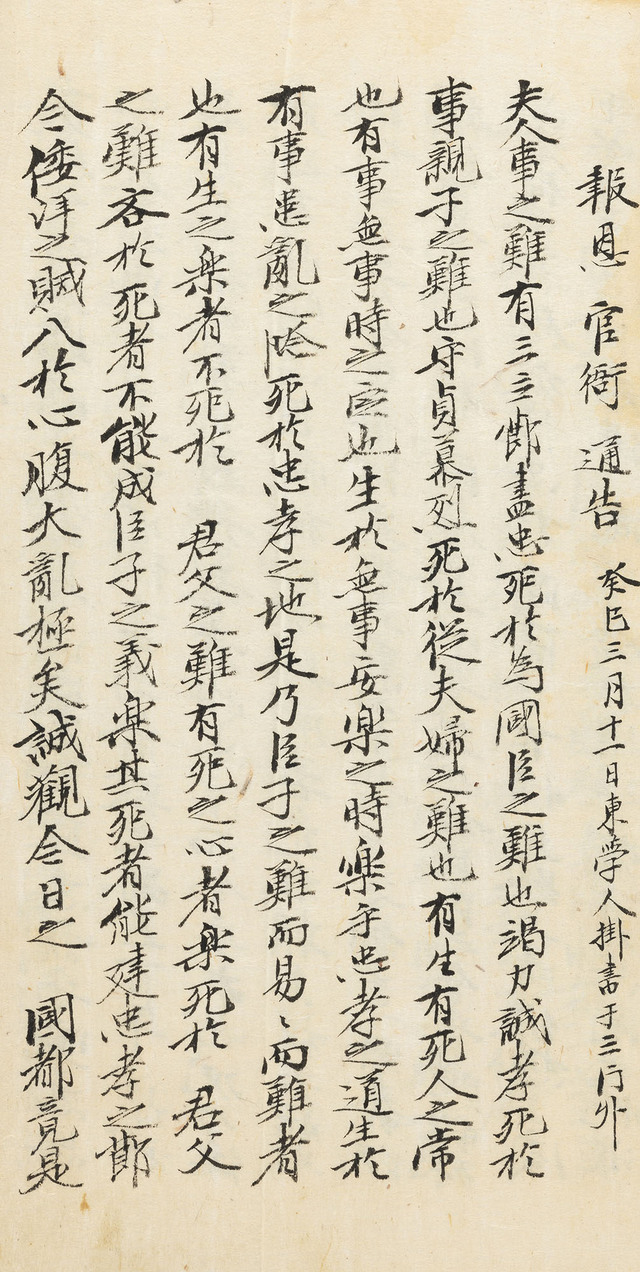 報恩 官衙 通告 癸巳三月十一日東學人掛書于三门外
夫人事之難有三立節盡忠死於為國臣之難也竭力誠孝死於
事親子之難也守貞慕烈死於從夫婦之難也有生有死人之常
也有事無事時之定也生於無事安樂之時樂乎忠孝之道生於
有事進亂之險死於忠孝之地是乃臣子之難而易〻而難者
也有生之楽者不死於 君父之難有死之心者楽死於 君父
之難吝於死者不能成臣子之義楽其死者能建忠孝之節
今倭洋之賊入於心腹大亂極矣誠觀今日之 國都竟是